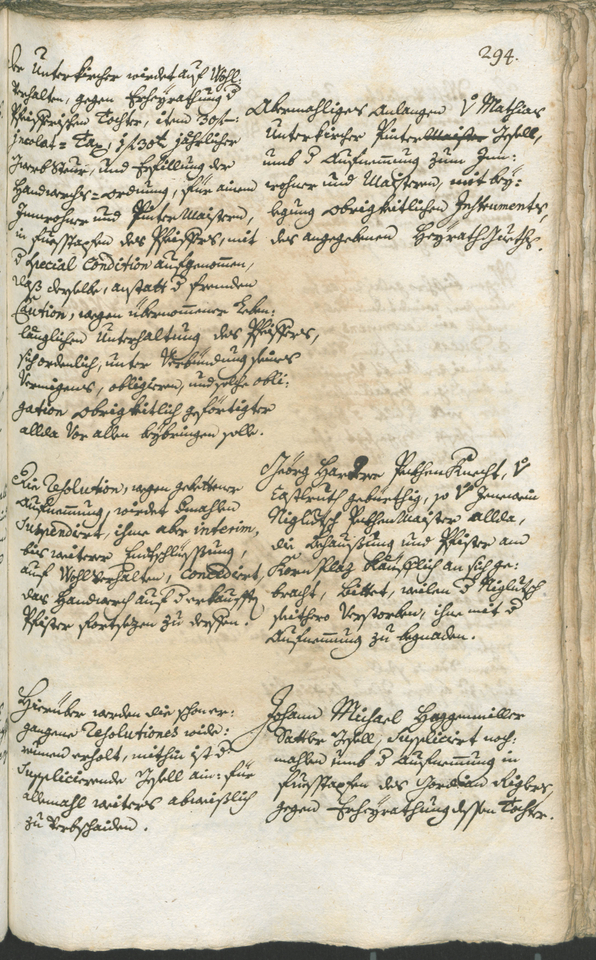 294.
Der Unterkircher wirdet auf Wohl-
verhalten, gegen Erheyrathung d
Pfisterischen Tochter, item 30 f:
Tax, 1 f 30 x jährlicher
Gwerb Steur, und Erfüllung der
Handwerchs-ordnung, für einen
Innwohner und Pinter Maistern,
in fuesstapfen des Pfisters, mit
d Special Condition aufgenommen,
daß derselbe, anstatt d fremden
Caution, wegen übernommener Leben-
länglichen Unterhaltung des Pfisters,
sich ordenlich, unter Verbündung seines
Vermögens, obligieren, und solche obli-
gation Obrigkeitlich geförtigter
allda vor allen beybringen solle.
Abermahliges Anlangen Mathias
Unterkircher Pinter Maister Gsell,
umb d Aufnemmung zum Inn-
wohner und Maistern, mit bey-
legung Obrigkeitlichen Instruments,
des angegebenen Heyrath Gueths.
Die Resolution, wegen gebettener
Aufnemmung, wirdet dermahlen
Suspendirt, ihme aber interim,
bis weiterer Entschlüssung,
auf Wohlverhalten, Concedirt,
das Handwerch auf der erkaufften
Pfister fortsezen zu derffen.
Geörg Pekhen Knecht, V
Castlruth gebürthig, so V
Niglutsch Pekhen Maister allda,
die Behaussung und Pfister am
Korn Plaz käufflich an sich ge-
bracht, bittet, weilen d Niglutsch
seithero verstorben, ihne mit d
Aufnemmung zu begnaden.
Hierüber werden die schon er-
gangene Resolutiones wide-
rumen erholt, mithin ist d
Supplicierende Gsell ain- für
allemahl weiters abweißlich
zu verbschaiden.
Johann Michael Haggenmiller
Sattler Gsell, Supplicirt noch-
mahlen umb d Aufnemmung in
fuesstapfen des Jordian
gegen Erheyrathung dessen Tochter.